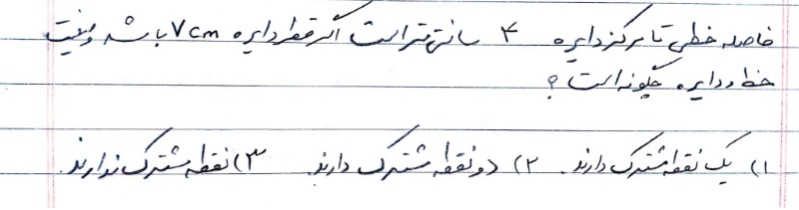 فاصله خطی تا مرکز دایره ۴ سانتی‌متر است اگر قطر دایره ۷cm باشد وضعیت
خط و دایره چگونه است؟
۱) یک نقطه مشترک دارند. ۲) دو نقطه مشترک دارند. ۳) نقطه مشترک ندارند.